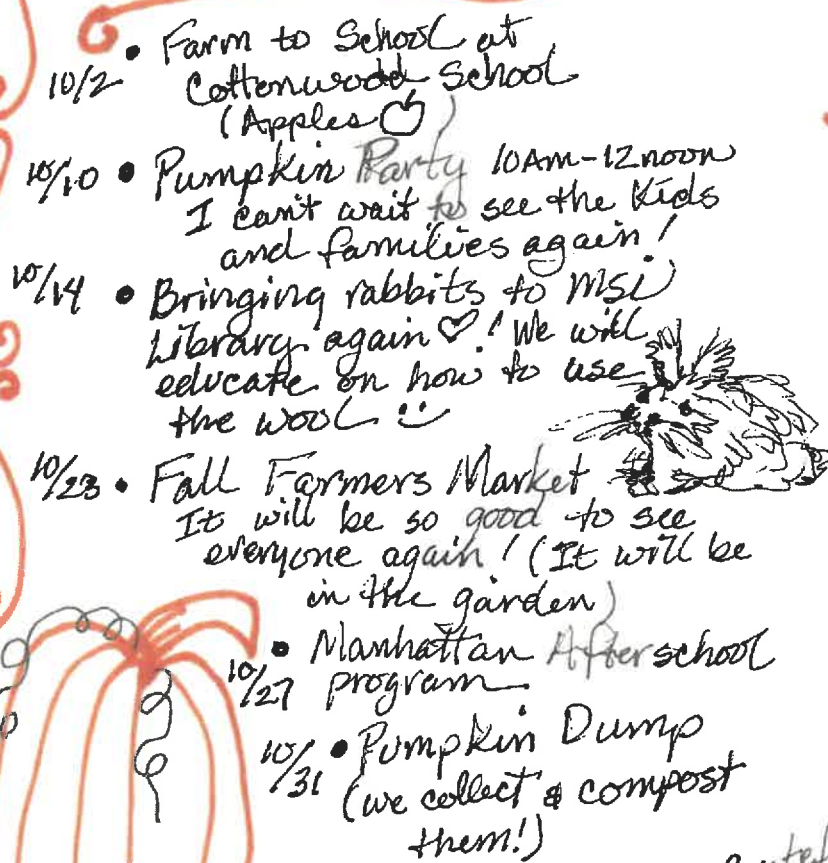 • Farm to School at
10/2 Cottenwood School
(Apples)
10/10 • Pumpkin Party 10AM-12noon
I can't wait to see the Kids
and families again!
10/14 • Bringing rabbits to MSU
Library again ♡! We will
educate on how to use
the wool :)
10/23 • Fall Farmers Market
It will be so good to see
everyone again! (It will be
in the garden)
• Manhattan Afterschool
10/27 program.
10/31 • Pumpkin Dump
(we collect & compost
them!)